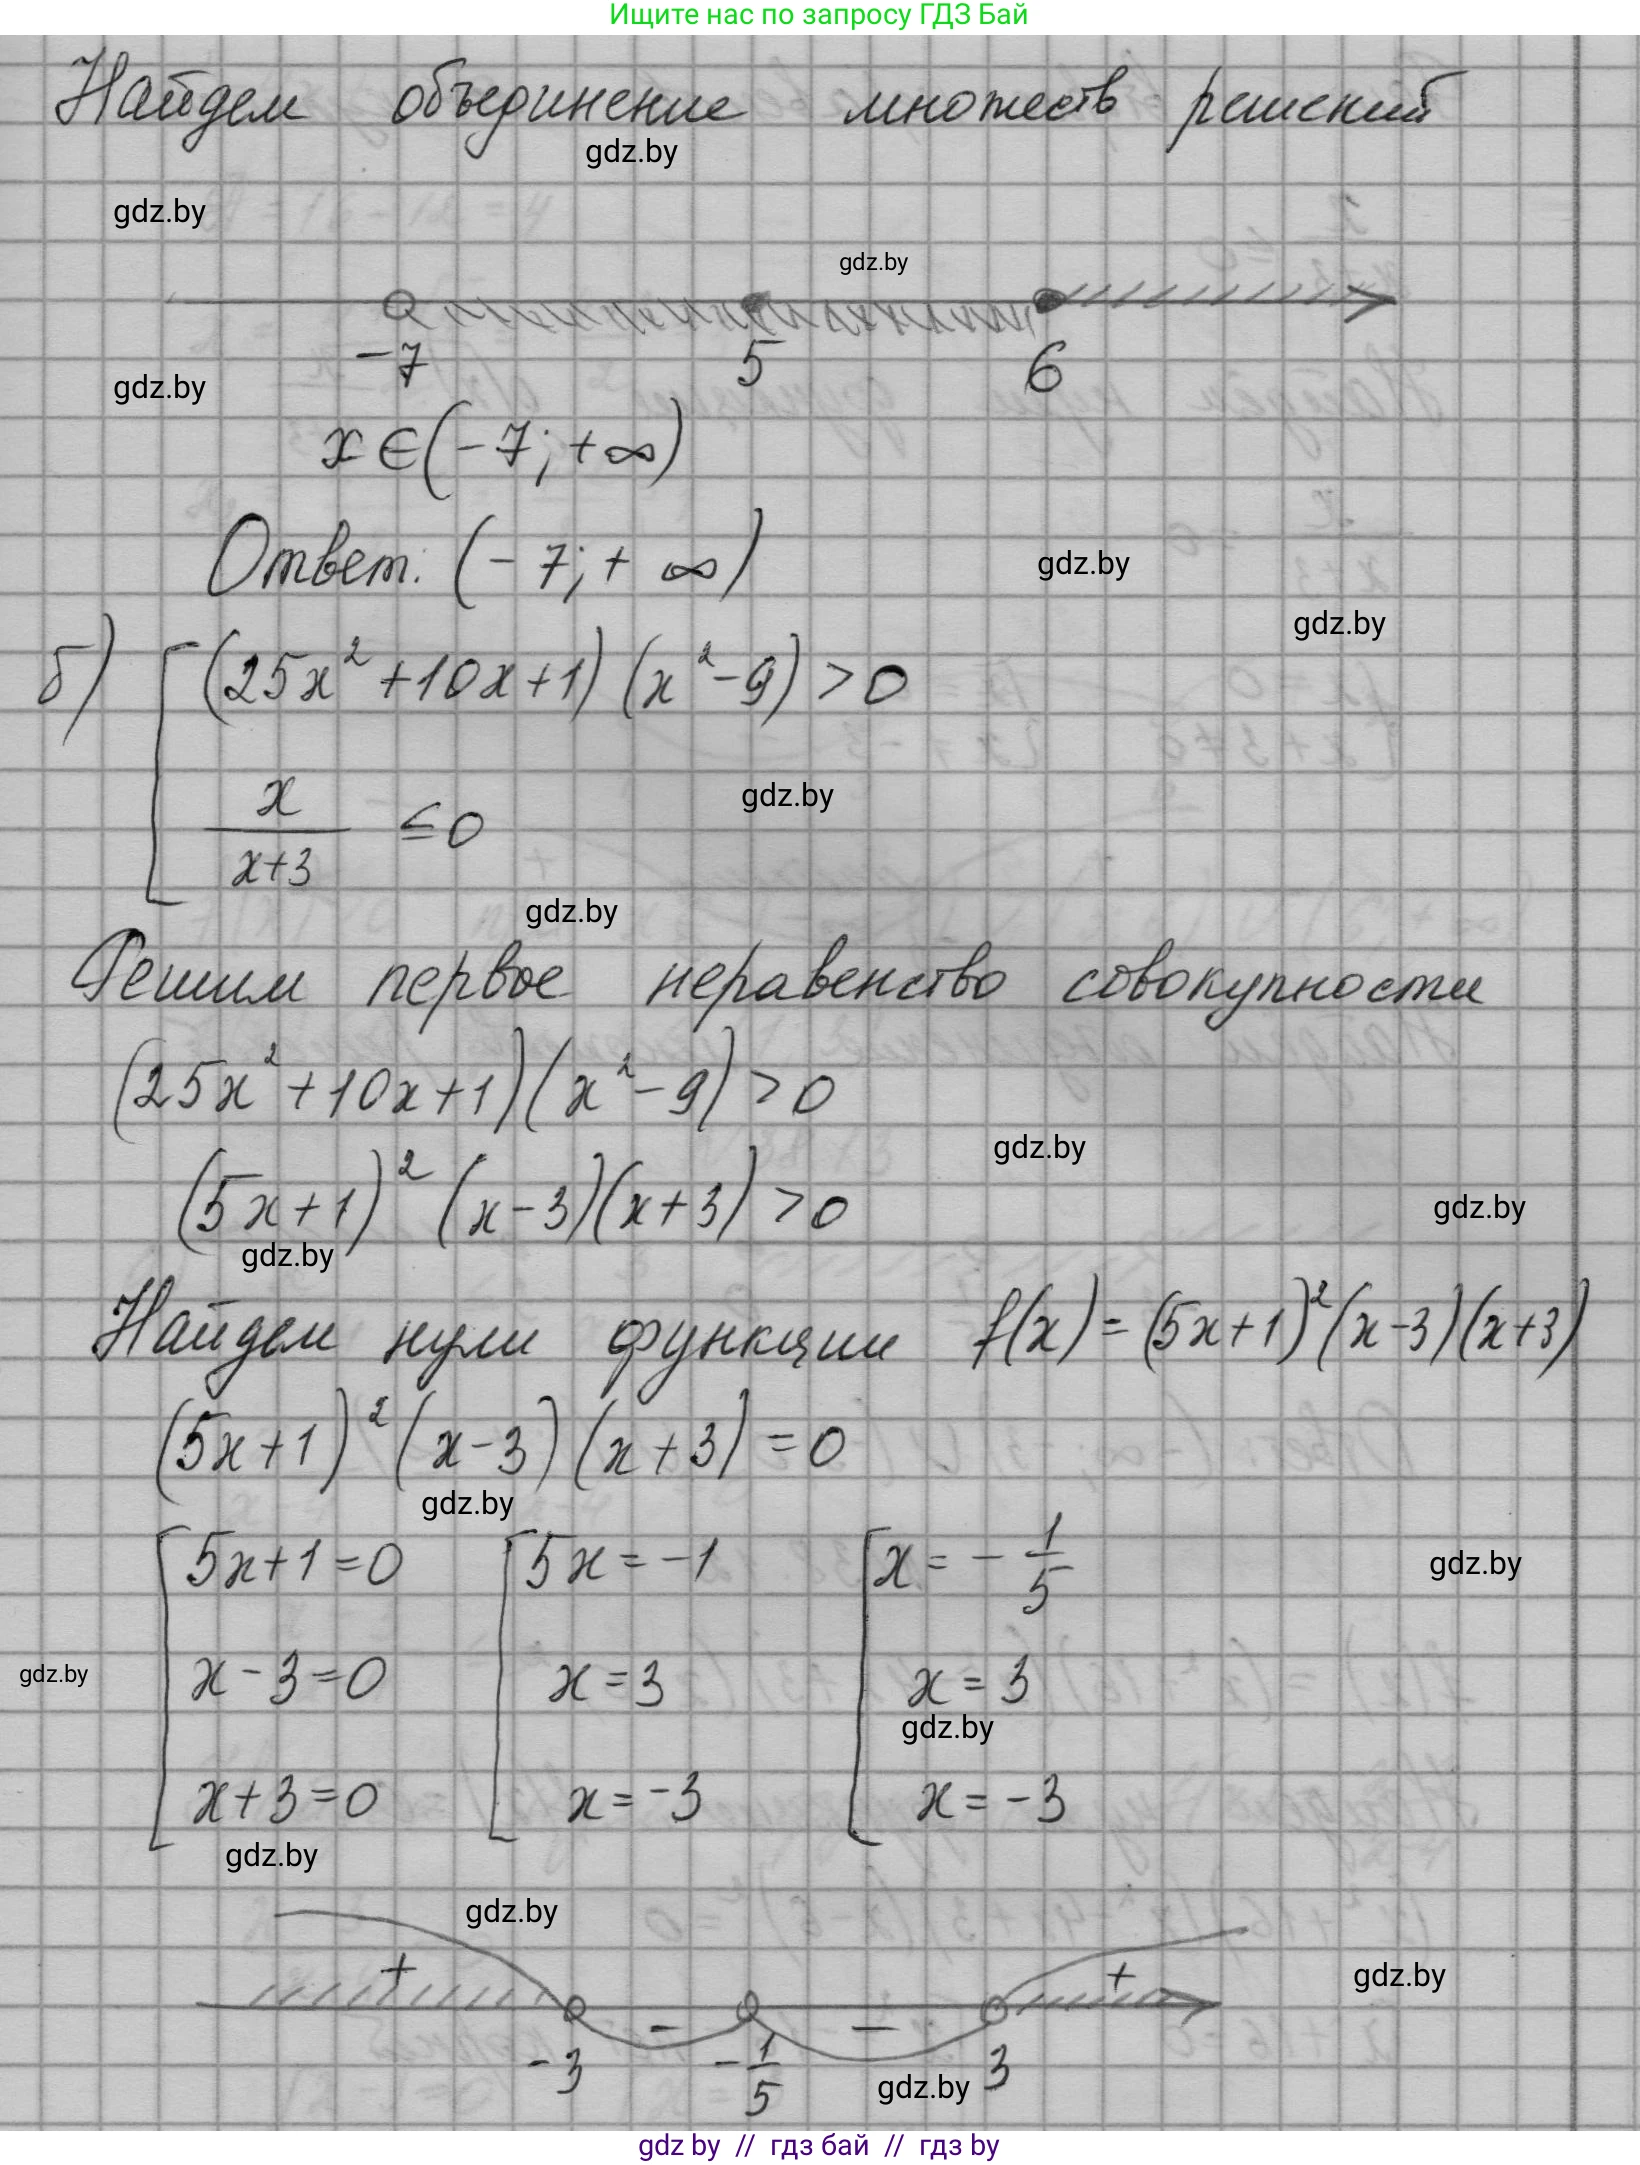 Ищите нас по запросу ГДЗ Бай
Найдем объединение множеств решений
gdz.by
gdz.by
gdz.by
-7 5 6
gdz.by
x ∈ (-7; +∞)
Ответ: (-7; +∞)
gdz.by
gdz.by
б) [ (25x² + 10x + 1)(x² - 9) > 0
x/(x+3) ≤ 0
gdz.by
gdz.by
Решим первое неравенство совокупности
(25x² + 10x + 1)(x² - 9) > 0
gdz.by
(5x + 1)² (x - 3)(x + 3) > 0
gdz.by
gdz.by
Найдем нули функции f(x) = (5x+1)²(x-3)(x+3)
(5x + 1)² (x - 3)(x + 3) = 0
gdz.by
[ 5x + 1 = 0 [ 5x = -1 [ x = -1/5
gdz.by
x - 3 = 0 x = 3 x = 3
gdz.by
gdz.by
x + 3 = 0 x = -3 x = -3
gdz.by
gdz.by
+ - - +
gdz.by
-3 -1/5 3
gdz.by
gdz by // гдз бай // гдз by